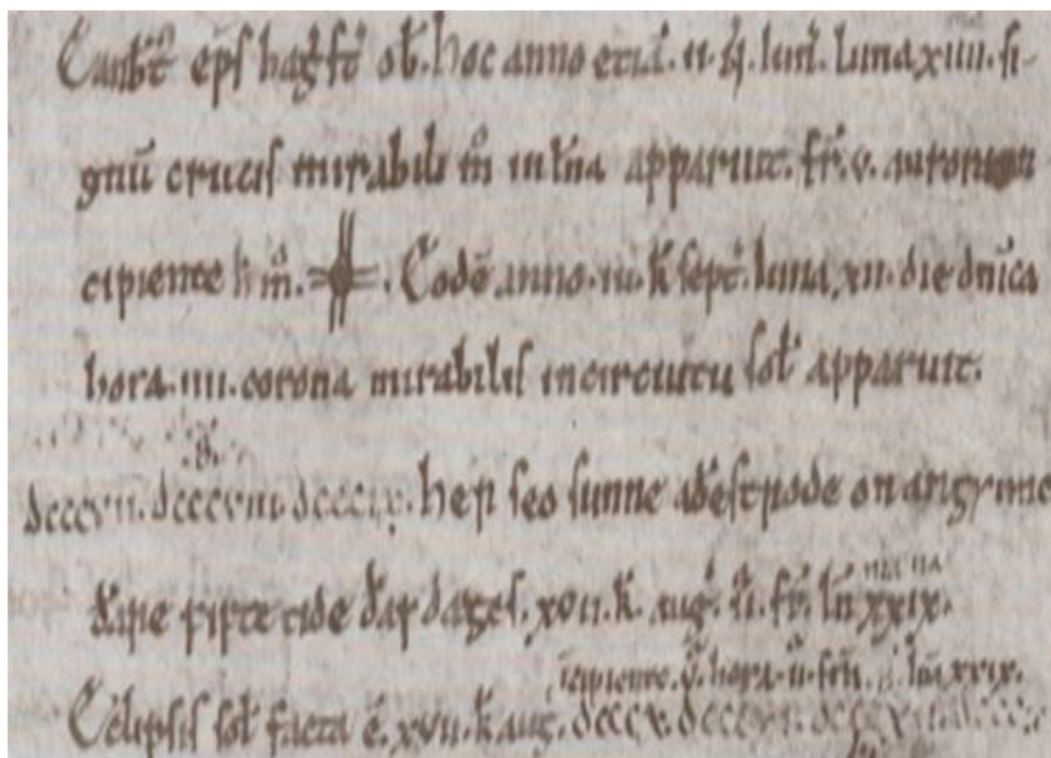 Eanb̄t ep̄s haḡst ob̄. hoc anno etiā. ii. iuñ. luna xiiii. si-
gnū crucis mirabili m̊ in luna apparuit. fr̄. v. aurora in
cipiente h m̊. Eodē anno. iii. k̄ sept̄. luna xii. die dn̄ica
hora. iiii. corona mirabilis in circuitu sol̄ apparuit.
dcccvii. dcccviii. dcccix. her seo sunne aðestrode on angynne
ðære fifte tide ðas dæges. xvii. k̄. aug̃. ii. fr̄. ln̄ xxix.
incipiente. v. hora. ii. fr̄. lūa xxix.
Eclipsis sol̄ facta ē. xvii. k̄ aug̃. dcccx.